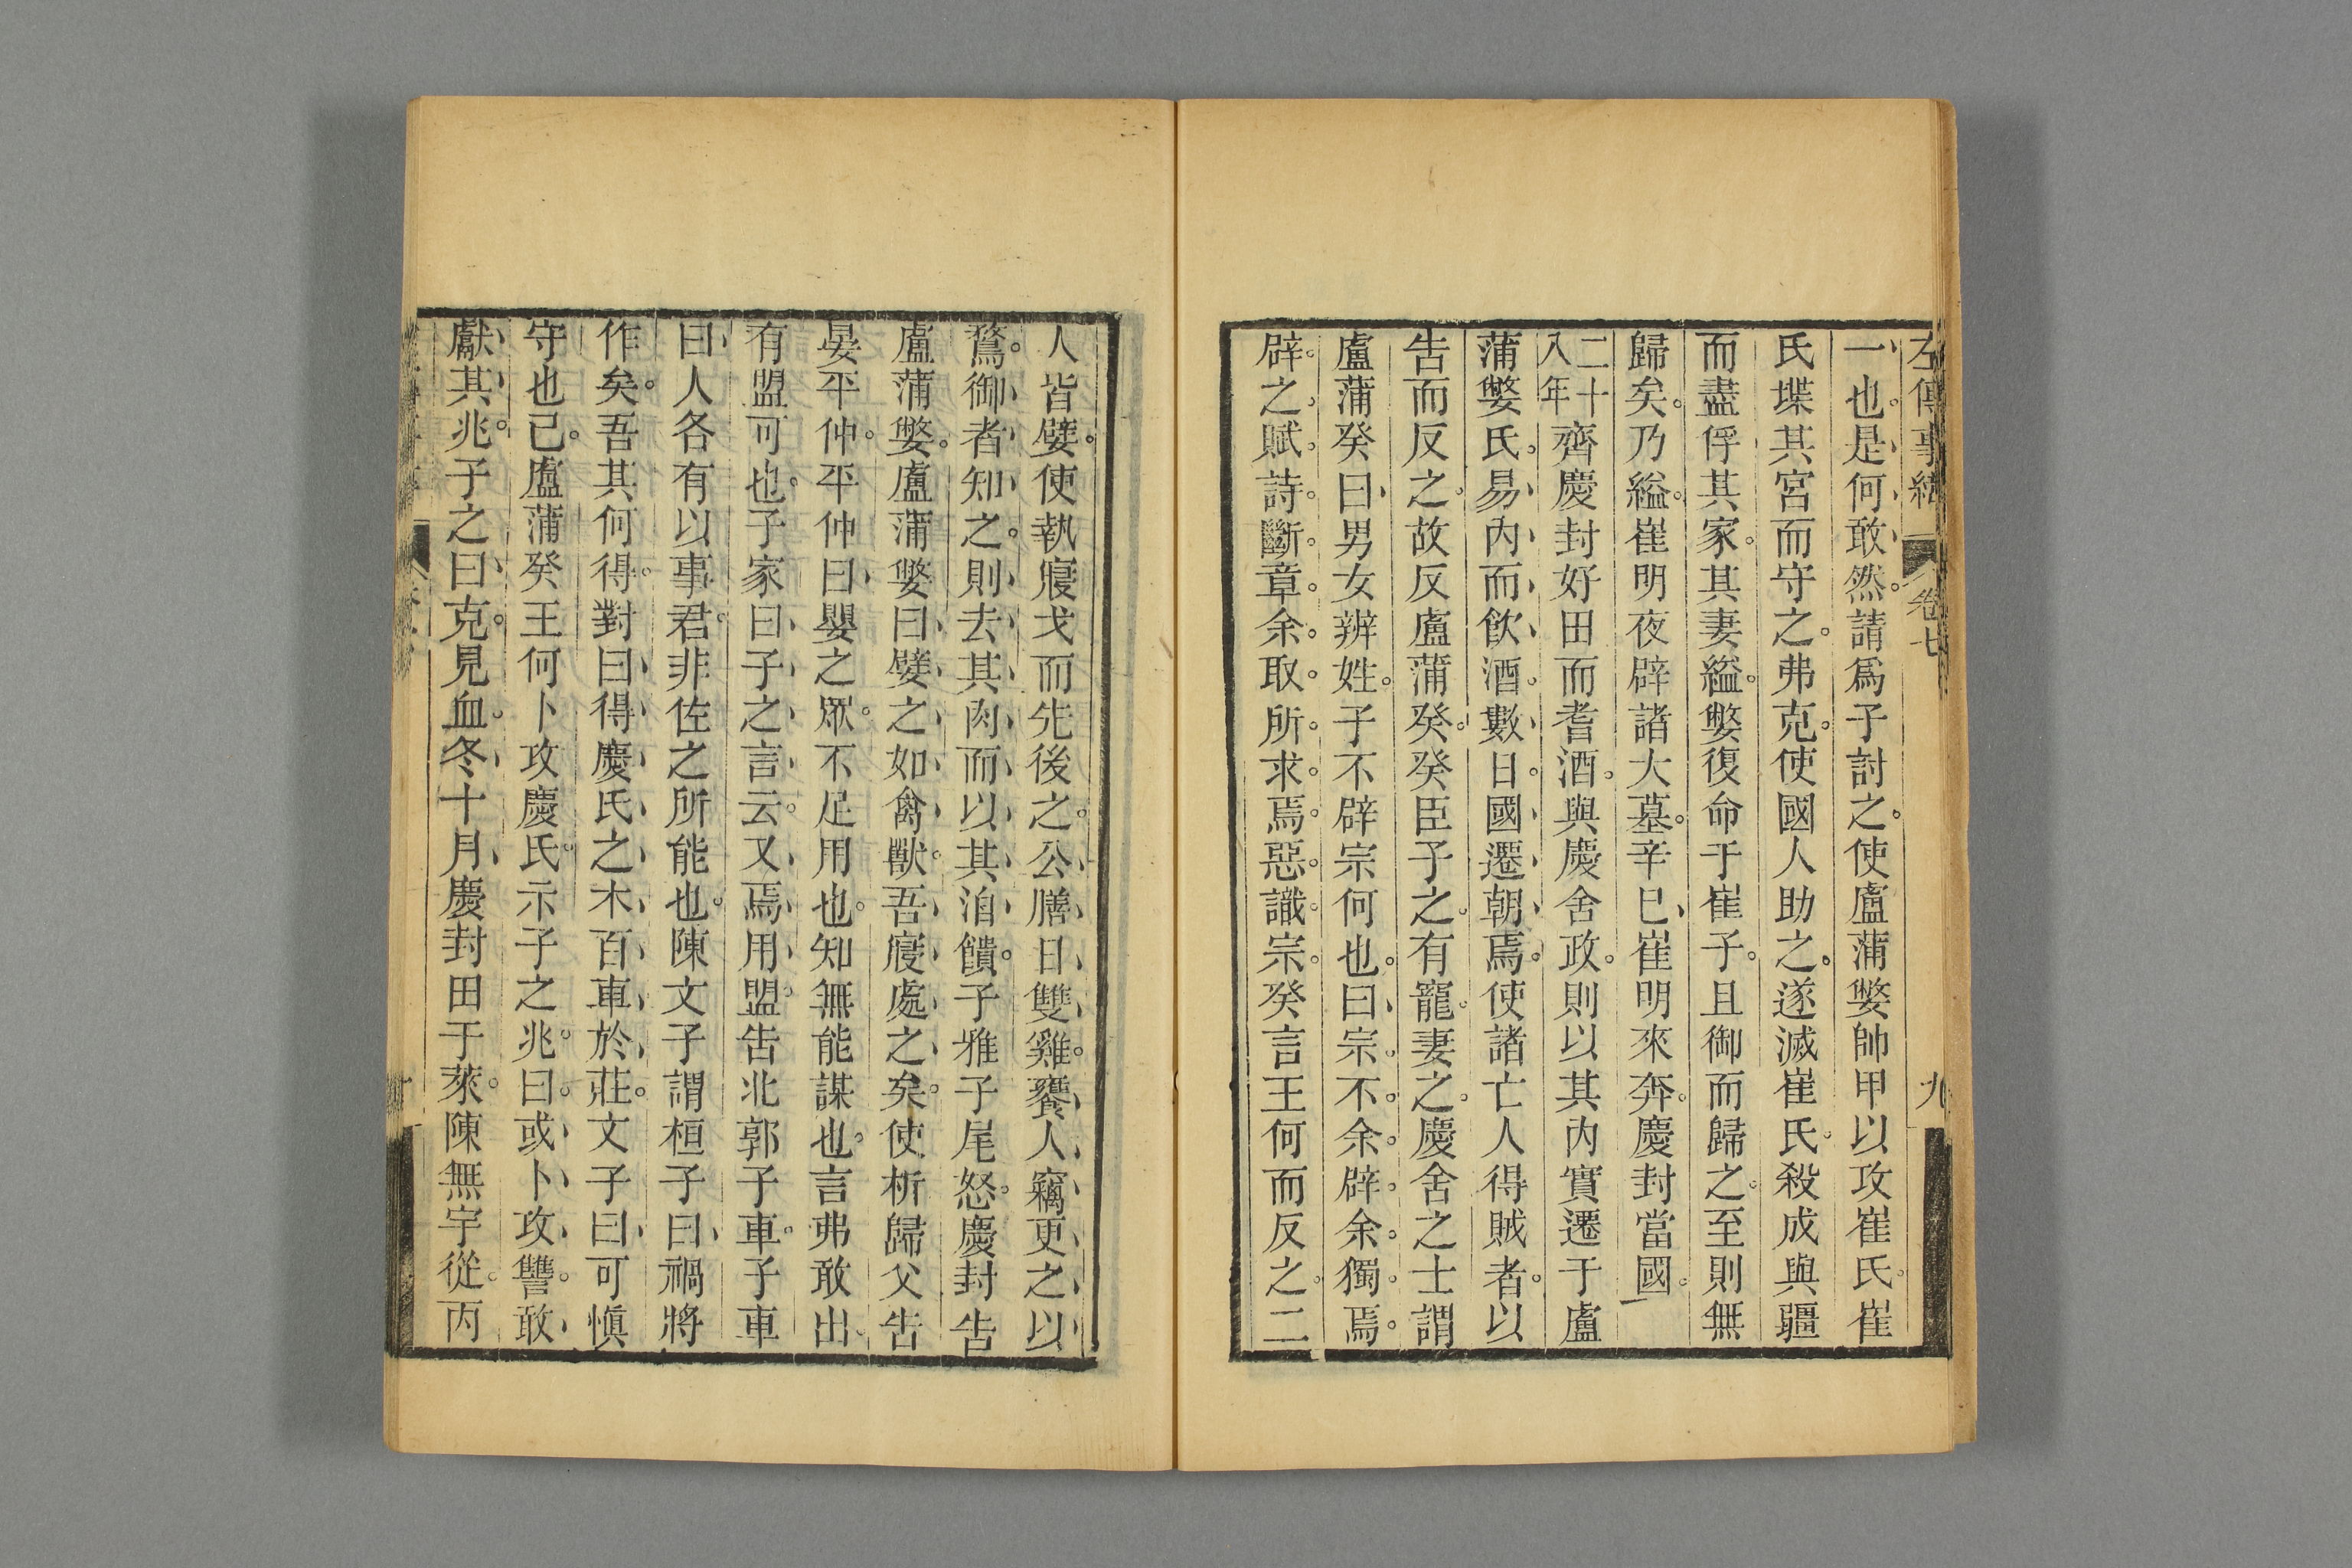 左傳事緯 卷七 九
一也是何敢然請爲子討之使盧蒲嫳帥甲以攻崔氏崔
氏堞其宮而守之弗克使國人助之遂滅崔氏殺成與疆
而盡俘其家其妻縊嫳復命于崔子且御而歸之至則無
歸矣乃縊崔明夜辟諸大墓辛巳崔明來奔慶封當國
二十八年齊慶封好田而耆酒與慶舍政則以其內實遷于盧
蒲嫳氏易內而飲酒數日國遷朝焉使諸亡人得賊者以
告而反之故反盧蒲癸癸臣子之有寵妻之慶舍之士謂
盧蒲癸曰男女辨姓子不辟宗何也曰宗不余辟余獨焉
辟之賦詩斷章余取所求焉惡識宗癸言王何而反之二
人皆嬖使執寢戈而先後之公膳日雙雞饔人竊更之以
鶩御者知之則去其肉而以其洎饋子雅子尾怒慶封告
盧蒲嫳盧蒲嫳曰譬之如禽獸吾寢處之矣使析歸父告
晏平仲平仲曰嬰之眾不足用也知無能謀也言弗敢出
有盟可也子家曰子之言云又焉用盟告北郭子車子車
曰人各有以事君非佐之所能也陳文子謂桓子曰禍將
作矣吾其何得對曰得慶氏之木百車於莊文子曰可慎
守也已盧蒲癸王何卜攻慶氏示子之兆曰或卜攻讐敢
獻其兆子之曰克見血冬十月慶封田于萊陳無宇從丙